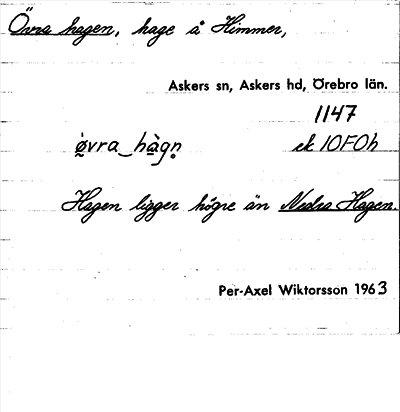 Övra hagen, hage å Himmer,
Askers sn, Askers hd, Örebro län.
1147
øvra_hàgn̥ ek 10F0h
Hagen ligger högre än Nedra Hagen.
Per-Axel Wiktorsson 1963